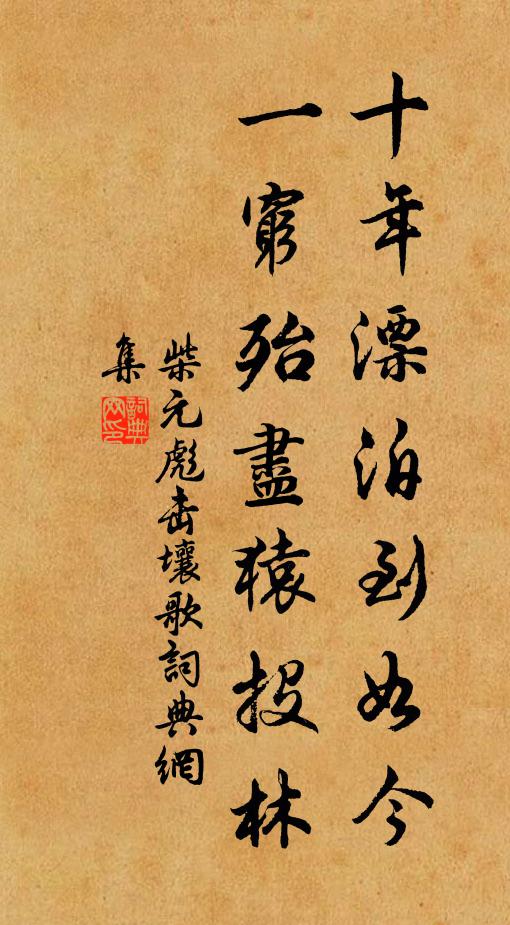 十年漂泊到如今
一窮殆盡猿投林
柴元彪击壤歌詞典網
集
詞典網印